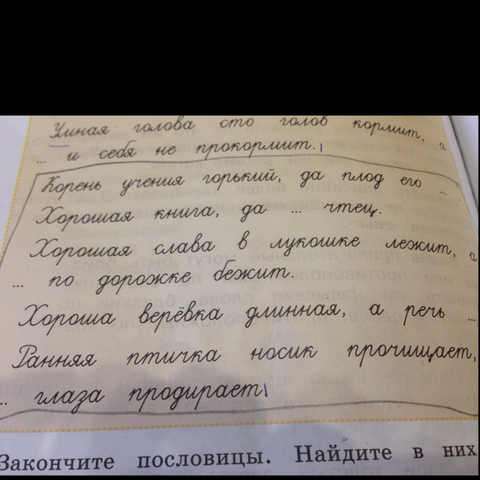 Умная голова сто голов кормит, а
... и себя не прокормит.
Корень учения горький, да плод его ...
Хорошая книга, да ... чтец.
Хорошая слава в лукошке лежит, а
... по дорожке бежит.
Хороша верёвка длинная, а речь ...
Ранняя птичка носик прочищает,
... глаза продирает
Закончите пословицы. Найдите в них